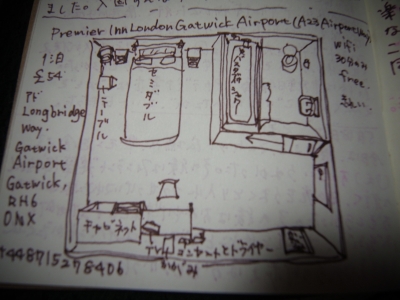 ました。入国
Premier Inn London Gatwick Airport (A23 Airport Way)
1泊
£54
Wifi
30分のみ
free.
テーブル
セミダブル
バスタブ付シャワー
Ad
Longbridge
Way.
Gatwick
Airport
Gatwick,
RH6
0NX
キャビネット
TV
コンセントとドライヤー
かがみ
+448715278406